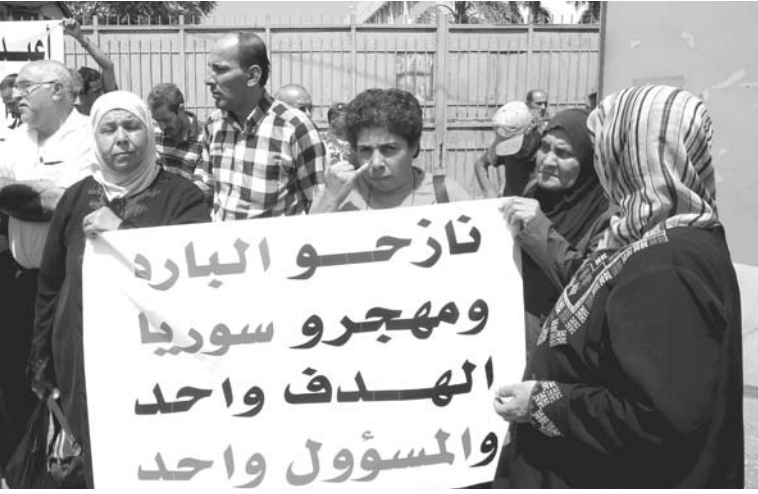 نازحو البارد
ومهجرو سوريا
الهدف واحد
والمسؤول واحد